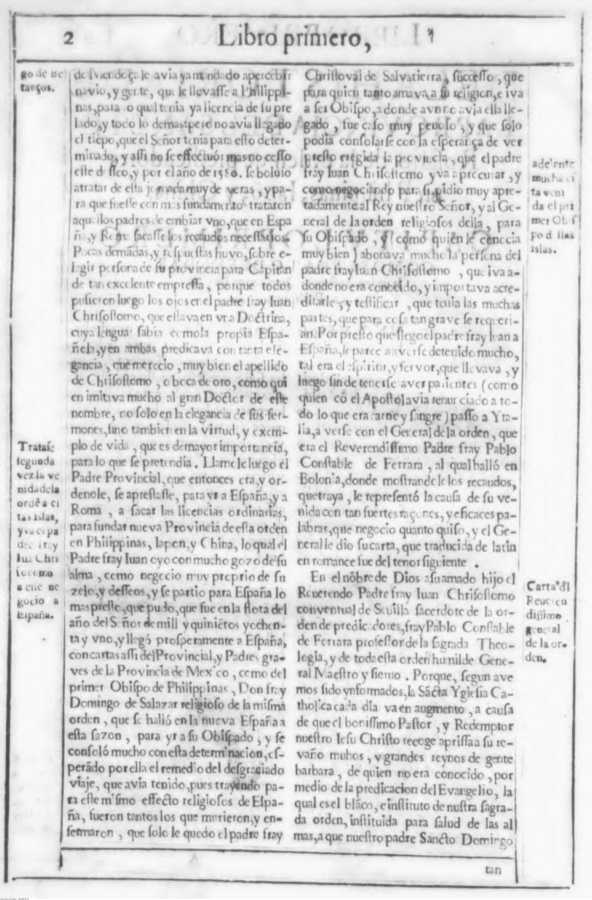 2
Libro primero,
desviend
navio, y gente, que le llevasse a Philippi-
nas, para o qual tenia ya licencia de su pre
lado, y todo lo demas pero no avia llegado
el tiẽpo, que el Señor tenia para esto deter-
minado, y assi no se effectuò: mas no cesso
este desseo, y por el año de 1580. se bolvio
atratar de esta jornada muy de veras, y pa-
ra que fuesse con mas fundamento trataron
aquellos padres de embiar vno, que en Espa
ña, y Roma sacasse los recaudos necessarios.
Pocas demãdas, y respuestas huvo, sobre e-
legir persona de su provincia para Capitan
de tan excelente empressa, porque todos
pusieron luego los ojos en el padre fray Iuan
Chrisostomo, que ella va en vra Doctrina,
cuya lengua sabia como la propia Espa-
ñola, y en ambas predicava con tanta ele-
gancia, que merecio, muy bien el apellido
de Chrisostomo, o boca de oro, como qui
en imitiva mucho al gran Doctor de este
nombre, no solo en la elegancia de sus ser-
mones, sino tambien en la virtud, y exem-
plo de vida, que es de mayor importancia,
para lo que se pretendia. Llamole luego el
Padre Provincial, que entonces era, y or-
denole, se aprestasse, para yr a España, y a
Roma, a sacar las licencias ordinarias,
para fundar nueva Provincia de esta orden
en Philippinas, Iapon, y China, lo qual el
Padre fray Iuan oyo con mucho gozo de su
alma, como negocio muy proprio de su
zelo, y desseos, y se partio para España lo
mas presto, que pudo, que fue en la flota del
año del Señor de mill y quiniẽtos y ochen-
ta y vno, y llegó prosperamente a España,
con cartas assi del Provincial, y Padres gra-
ves de la Provincia de Mexico, como del
primer Obispo de Philippinas, Don fray
Domingo de Salazar religioso de la misma
orden, que se halló en la nueva España a
esta sazon, para yr a su Obispado, y se
consoló mucho con esta determinacion, es-
perãdo por ella el remedio del desgraciado
viaje, que avia tenido, pues trayendo pa-
ra este mismo effecto religiosos de Espa-
ña, fueron tantos los que murieron, y en-
fermaron, que solo le quedo el padre fray
Tratase
segunda
vez la ve
nida de la
ordẽ a es
tas islas,
y va el pa
dre fray
Iuã Chri
sostomo
a este ne
gocio a
España.
Christoval de Salvatierra, successo, que
para quien tanto amava, a su religion, e iva
a ser Obispo, adonde aun no avia ella lle-
gado, fue caso muy penoso, y que solo
podia consolarse con la esperança de ver
presto erigida la provincia, que el padre
fray Iuan Chrisostomo yva a procurar, y
como negociando para si, pidio muy apre-
tadamente al Rey nuestro Señor, y al Ge-
neral de la orden religiosos della, para
su Obispado, y (como quien le conocia
muy bien) abonava mucho la persona del
padre fray Iuan Chrisostomo, que iva a-
donde no era conocido, y importava acre-
ditarle, y testificar, que tenia las muchas
partes, que para cosa tan grave se requeri-
an. Por presto que llego el padre fray Iuan a
España, le parece averse detenido mucho,
tal era el espiritu, y fervor, que llevava, y
luego sin detenerse a ver parientes (como
quien cõ el Apostol avia renunciado a to-
do lo que era carne y sangre) passo a Yta-
lia, a verse con el General de la orden, que
era el Reverendissimo Padre fray Pablo
Constable de Ferrara, al qual halló en
Bolonia, donde mostrandole los recaudos,
que traya, le representó la causa de su ve-
nida con tan fuertes razones, y eficaces pa-
labras, que negocio quanto quiso, y el Ge-
neral le dio su carta, que traducida de latin
en romance fue del tenor siguiente.
En el nõbre de Dios a su amado hijo el
Reverendo Padre fray Iuan Chrisostomo
conventual de Sevilla sacerdote de la or-
den de predicadores, fray Pablo Constable
de Ferrara professor de la sagrada Theo-
logia, y de toda esta orden humilde Gene-
ral Maestro y siervo. Porque, segun ave
mos sido ynformados, la Sãcta Yglesia Ca-
tholica cada dia va en augmento, a causa
de que el bonissimo Pastor, y Redemptor
nuestro Iesu Christo recoge aprissa a su re-
vaño muchos, y grandes reynos de gente
barbara, de quien no era conocido, por
medio de la predicacion del Evangelio, la
qual es el blãco, e instituto de nuestra sagra-
da orden, instituida para salud de las al
mas, a que nuestro padre Sancto Domingo
tan
mucha ci
ta veni
da el pri
mer Obis
po d. stas
islas.
Carta dl
Reveren
dissimo
general
de la or-
den.